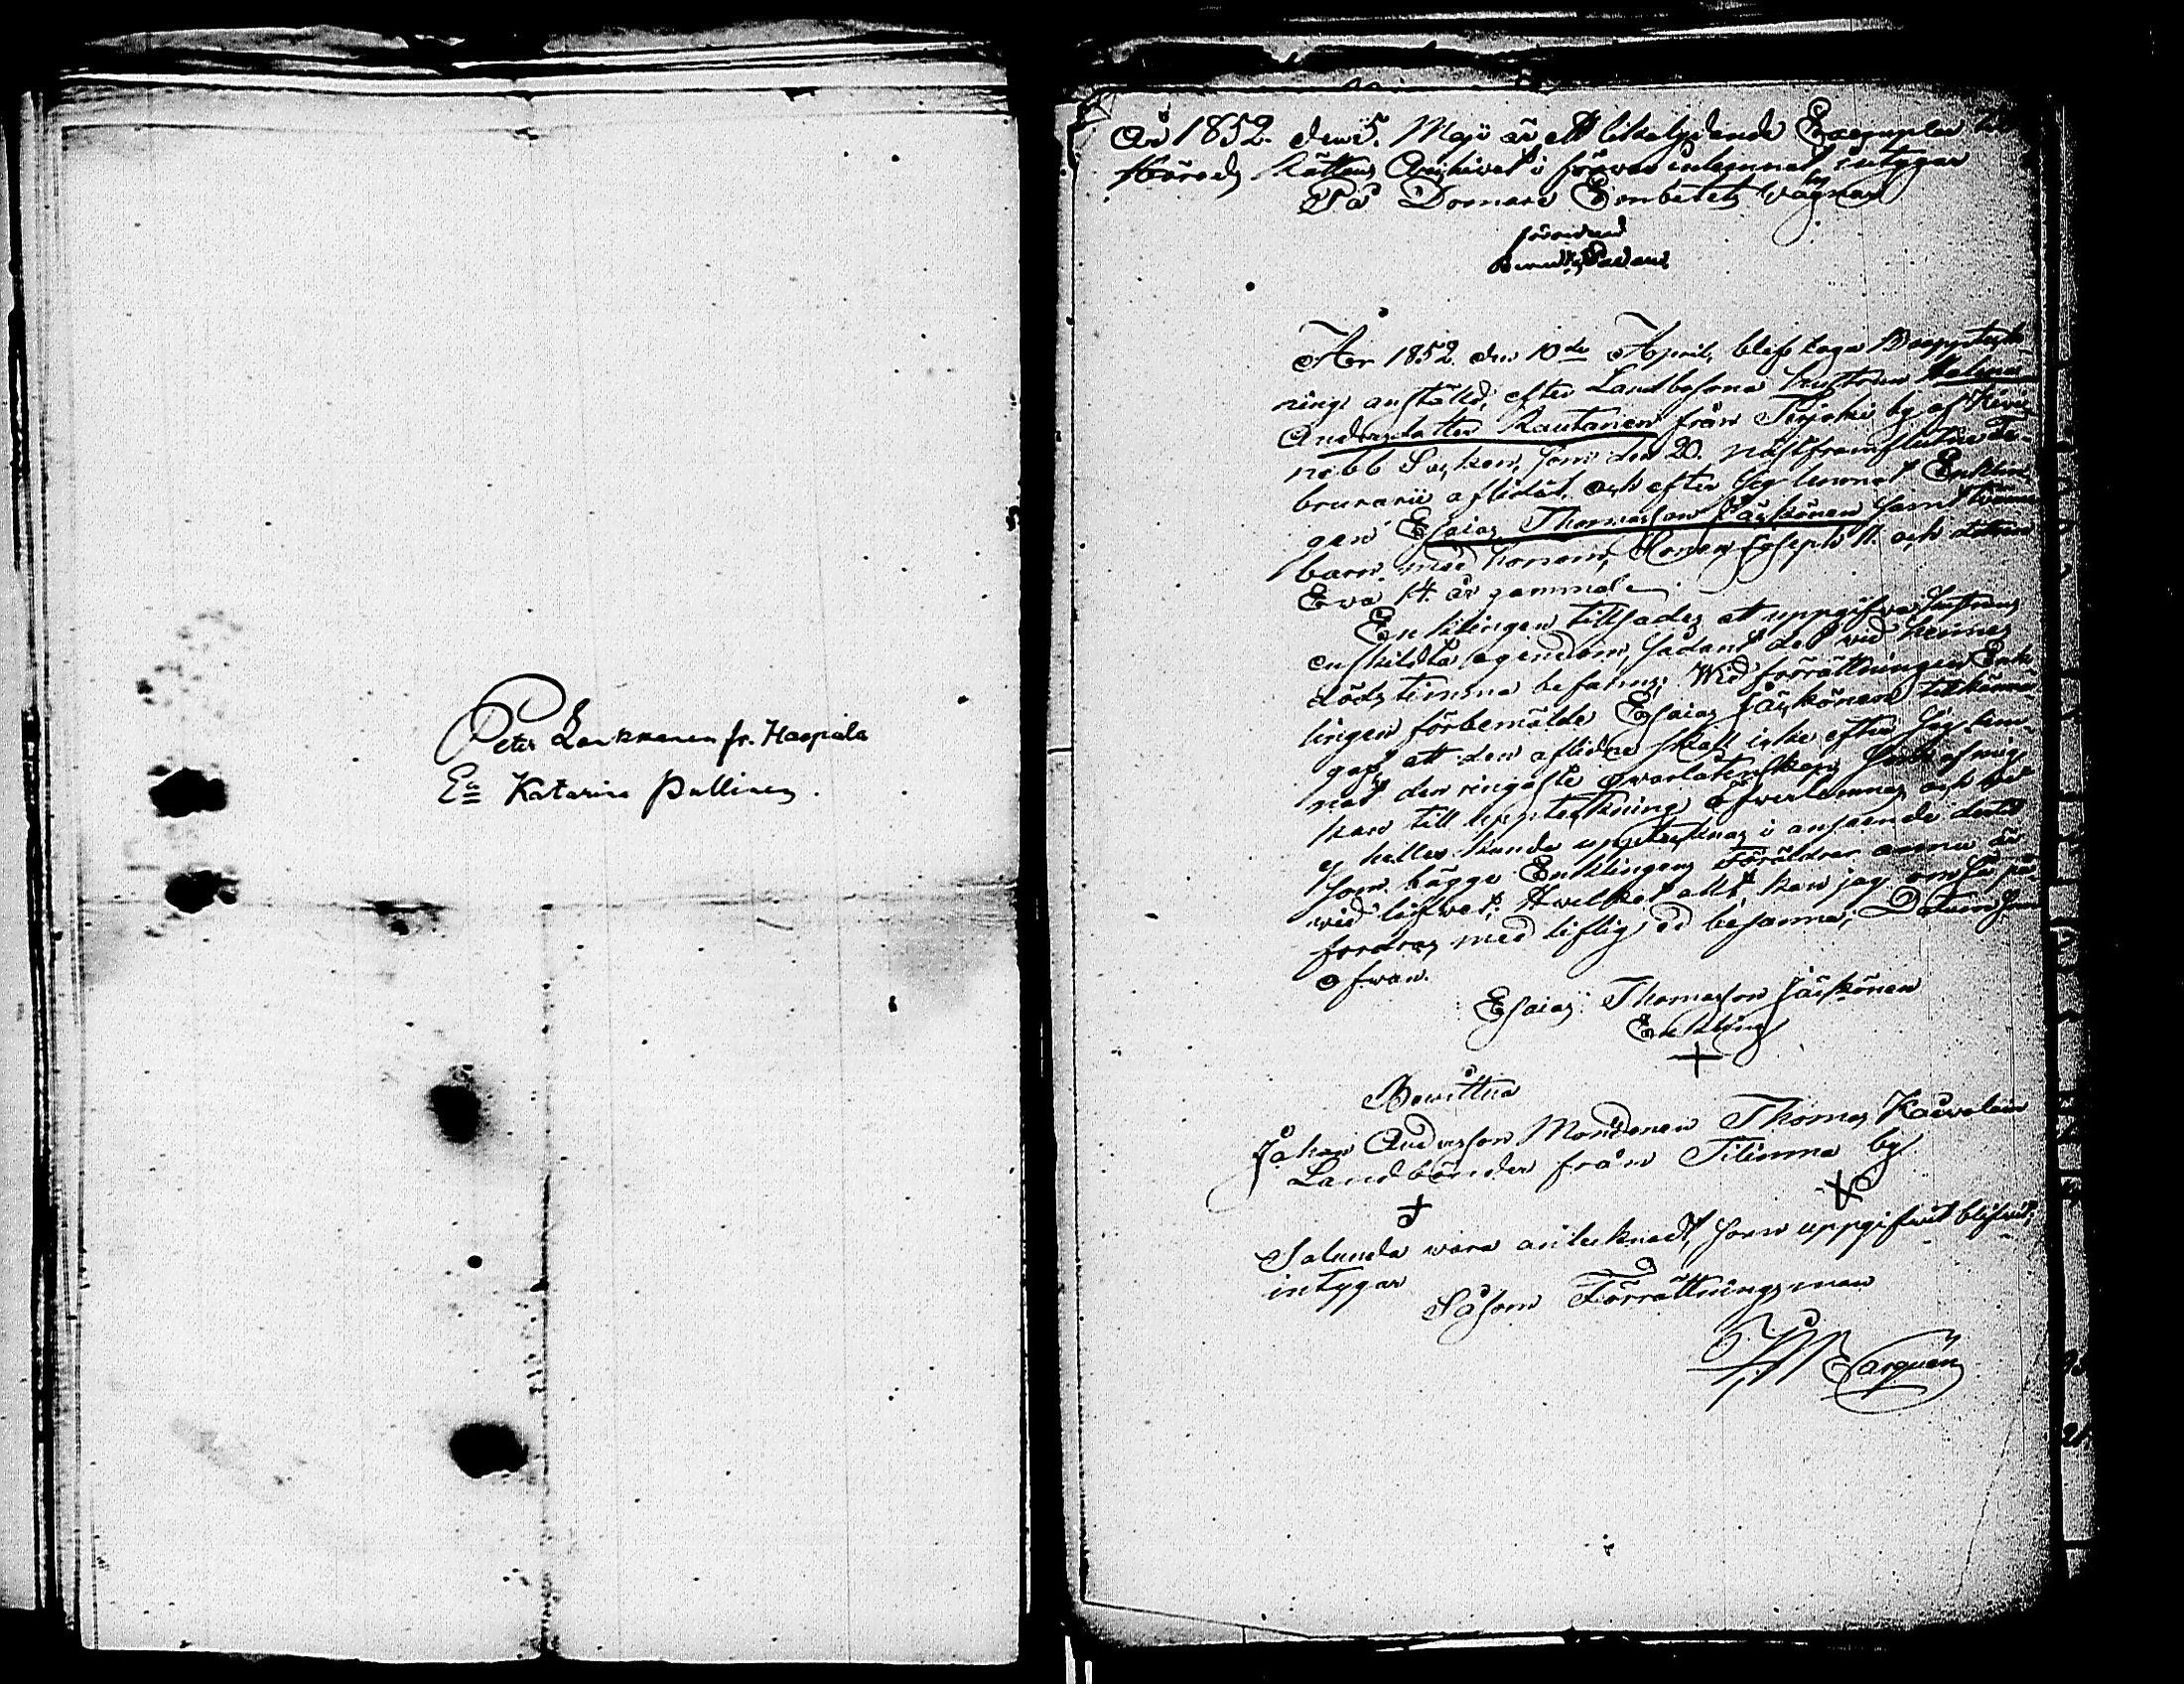 Peter Laukkanen fr. Haapiala
Ea Katarina Pullinen.
År 1852. den 5. Maji är ett likalydande Exemplar till
Härads Rättens Archivet i förvar inlemnat intygar
På Domare Embetets vägnar
År 1852. den 10de April, blef laga Bouppteck-
ning anstäld, efter Landbofona hustrun Helena
Andersdotter Rautanen från Terjoki by af Kive-
nebb Socken, som den 20. nästframflutne Fe-
bruarii aflidit, och efter sig lemnat Enklin-
gen Esaias Thomasson Jäskönen samt tvänne
barn med honom, Sonen Joseph 11 och dottren
Ewa 14 år gammal.
Enklingen tillsades at uppgifva hustruns
enskildta egendom, sådant det vid hennes
dödstimma befans; Wid förrättningen Enk-
lingen förbemälde Esaias Jäskönen tillkänna
gaf, att den aflidne skall icke efter sig lem-
nat den ringaste qvarlåtenskap, som af mig
kan till uppteckning öfverlemnas, och bo
ej heller kunde upptecknas i anseende dertil
som bägge Enklingens Föräldrar ännu är
vid lifvet; Hvilket allt kan jag om så på-
fordras med liflig ed besanna; Datum som
ofwan.
Esaias Thomasson Jäskönen
Enkling
+
Bewittna
Johan Andersson Mondonen Thomas Kauvolain
Landbönder från Titinma by
+ +
Salunda wara antecknadt, som uppgifwit blifwit,
intygar
Såsom Förrättningsman